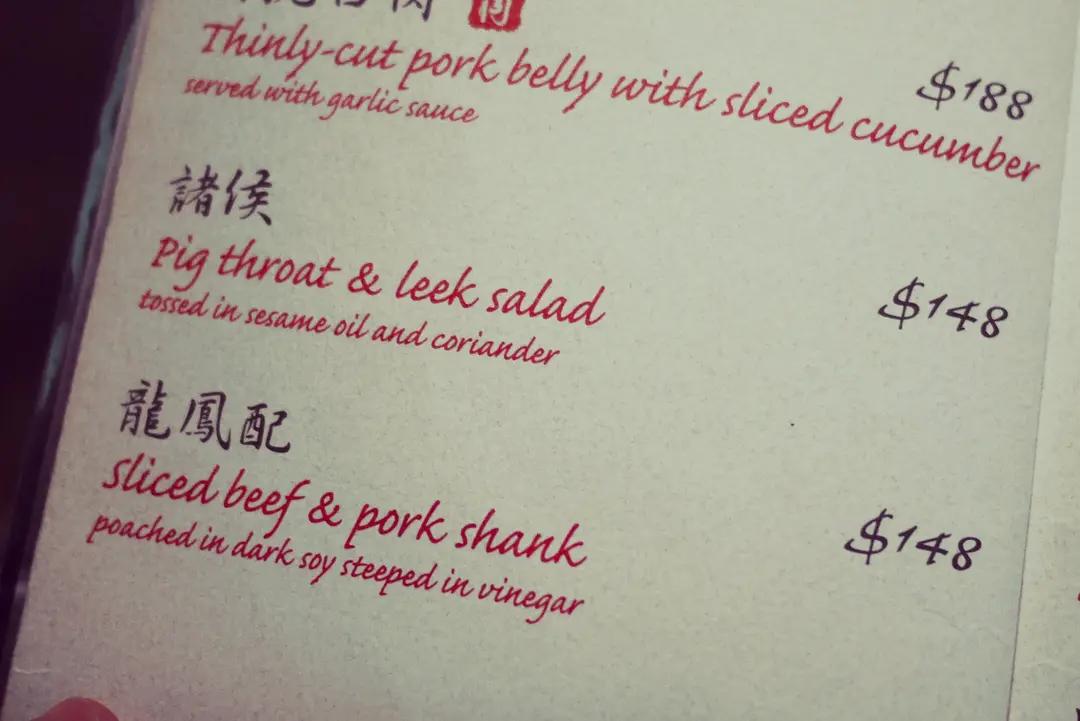 Thinly-cut pork belly with sliced cucumber
$188
served with garlic sauce
諸侯
Pig throat & leek salad
$148
tossed in sesame oil and coriander
龍鳳配
Sliced beef & pork shank
$148
poached in dark soy steeped in vinegar